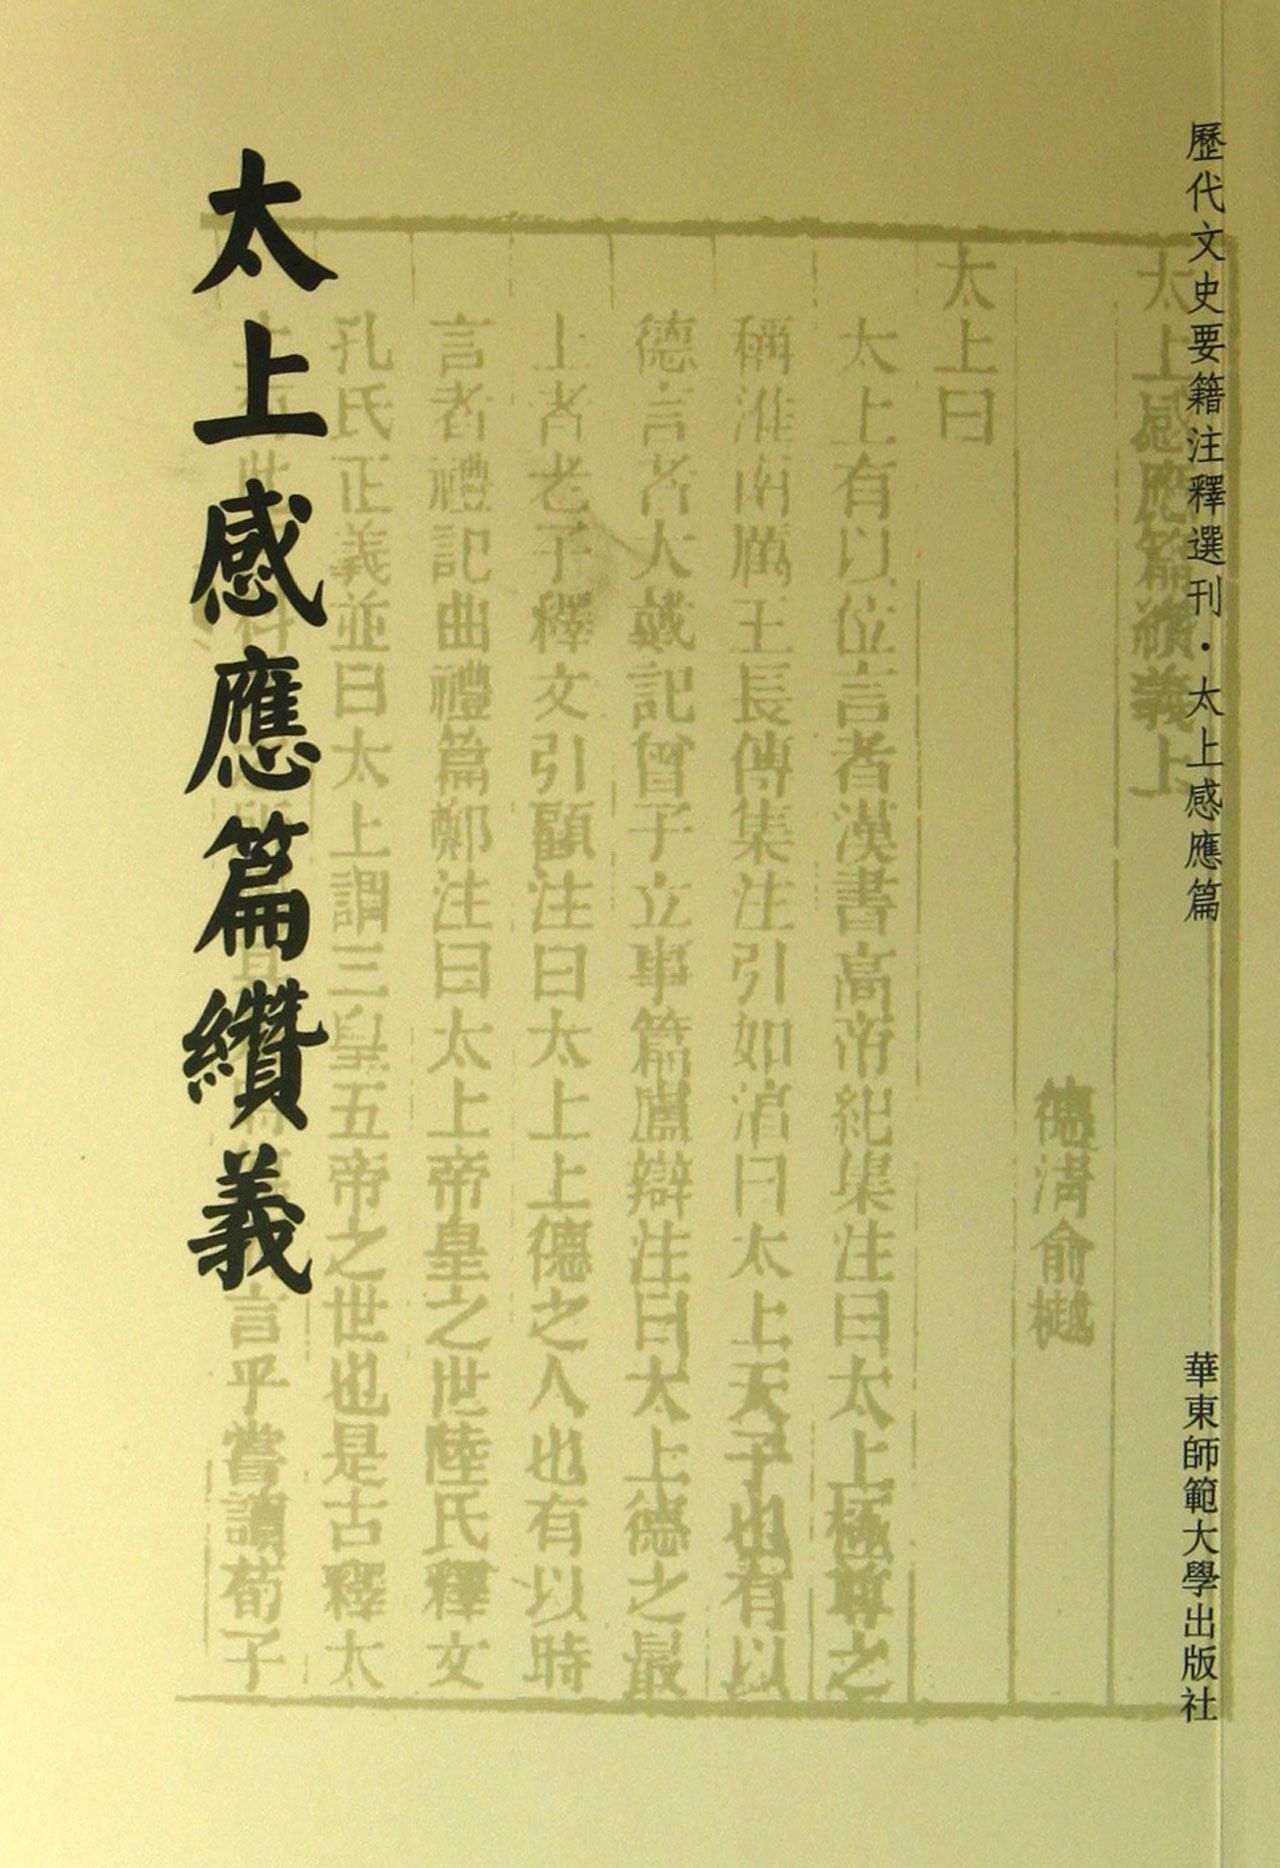 歷代文史要籍注釋選刊・太上感應篇
華東師範大學出版社
太上感應篇纘義上
德清俞樾
太上曰
太上有以位言者漢書高帝紀集注曰太上極尊之
稱淮南厲王長傳集注引如淳曰太上天子也有以
德言者大戴記曾子立事篇盧辯注曰太上德之最
上者老子釋文引顧注曰太上上德之人也有以時
言者禮記曲禮篇鄭注曰太上帝皇之世陸氏釋文
孔氏正義並曰太上謂三皇五帝之世也是古釋太
言乎嘗讀荀子
太上感應篇纘義